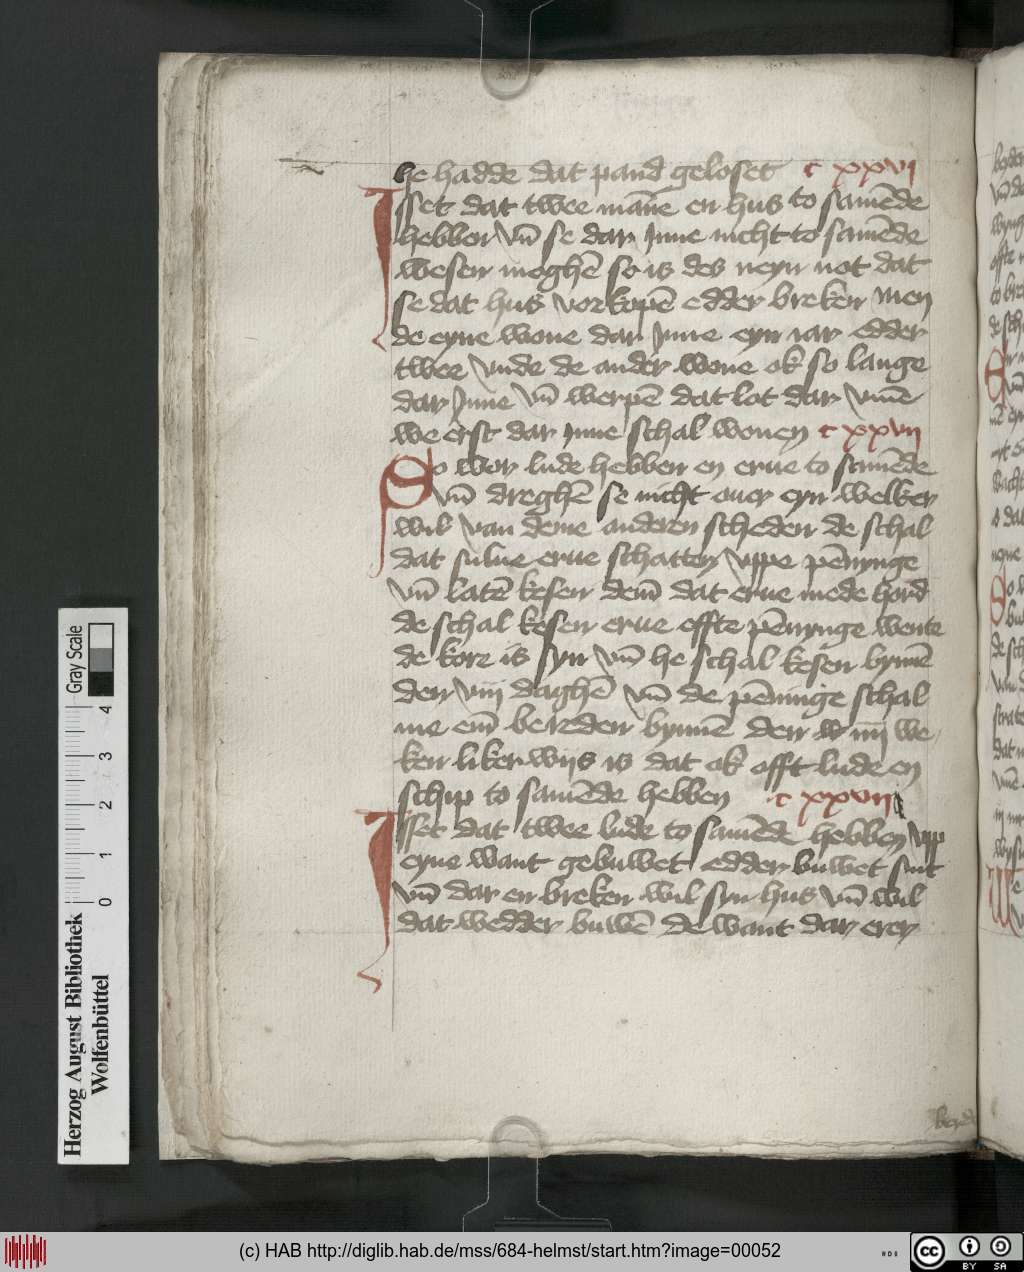 he hadde dat pand geloset c xxvi
Isset dat twee māne en hus to samēde
hebben vn̄ se dar Inne nicht to samēde
wesen moghē so is des neyn not dat
se dat hus vorkopē edder breken Men
de eyne wone dar Inne eyn iar edder
twee vnde de ander wone ok so lange
dar Inne vn̄ werpē dat lot dar vmē
we erst dar Inne schal wonen c xxvii
So wor lude hebben en erue to samēde
vn̄ dreghē se nicht ouer eyn welker
wil van deme anderen scheden de schal
dat sulue erue schatten vppe pēnynge
vn̄ latē kesen dem̄ dat erue mede hord
de schal kesen erue offte pēnynge wente
de kore is syn vn̄ he schal kesen bynnē
den viij daghē vn̄ de pēninge schal
me em̄ bereden bynnē den iiij we
ken liker wijs is dat ok offt lude en
schip to samēde hebben c xxviii
Isset dat twee lude to samēde hebben vpp
eyne want gebuwet edder buwet sint
vn̄ dar en breken wil syn hus vn̄ wil
dat wedder buwē de want dar erer
Gray Scale
0 1 2 3 4
Herzog August Bibliothek
Wolfenbüttel
(c) HAB http://diglib.hab.de/mss/684-helmst/start.htm?image=00052
cc BY SA